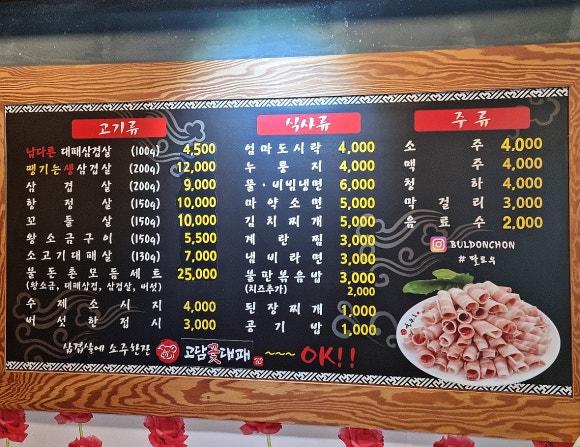 고기류
남다른 대패삼겹살 (100g) 4,500
땡기는 생삼겹살 (200g) 12,000
삼겹살 (200g) 9,000
항정살 (150g) 10,000
꼬들살 (150g) 10,000
왕소금구이 (150g) 5,500
소고기대패살 (130g) 7,000
불돈촌모듬세트 25,000
(왕소금, 대패삼겹, 삼겹살, 버섯)
수제소시지 4,000
버섯한접시 3,000
식사류
엄마도시락 4,000
누룽지 4,000
물·비빔냉면 6,000
마약소면 5,000
김치찌개 5,000
계란찜 3,000
냄비라면 3,000
불판볶음밥 3,000
(치즈추가) 2,000
된장찌개 1,000
공기밥 1,000
주류
소주 4,000
맥주 4,000
청하 4,000
막걸리 3,000
음료수 2,000
BULDONCHON
#팔로우
삼겹살에 소주한잔
고담꽃대패
~~~ OK!!